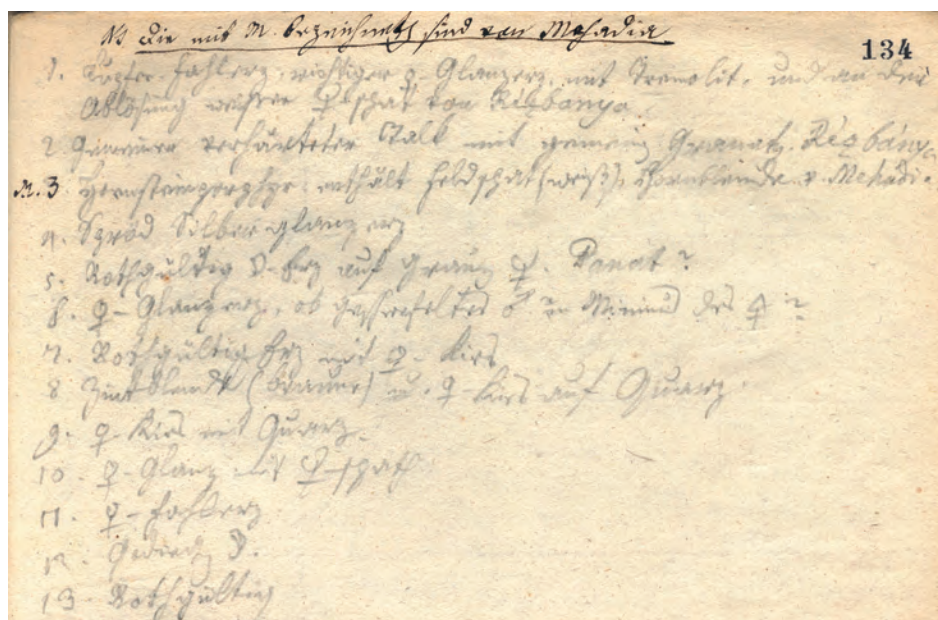 NB die mit M. bezeichneten sind von Mehadia
134
1. Kupfer-Fahlerz, richtiger ♀-Glanzerz, mit Tremolit, und an der
Ablösung weisser spat von Rézbanya
2. verhärteter Talk mit gemein Granat. Rézbánya
M. 3 Hornsteinporphyr, enthält Feldspat (weiß), Hornblende v. Mehadi-
4. Spröd Silberglanzerz
5. Rothgültig ☽-Erz auf Quarz. Banat?
6. ♀-Glanzerz, ob geschwefeltes in Minimo des ?
7. Rothgültig Erz mit ♀-Kies
8 Zinkblende (braune) u. ♀-Kies auf Quarz.
9. ♀-Kies mit Quarz.
10. ♀-Glanz mit spath
11. ♀-Fahlerz
12. Gediegen ☽.
13. Rothgültig